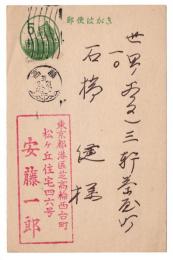 郵便はがき
世田谷区三軒茶屋町
一〇
石橋 健 様
東京都港区芝高輪西台町
松ヶ丘住宅四六号
安藤一郎